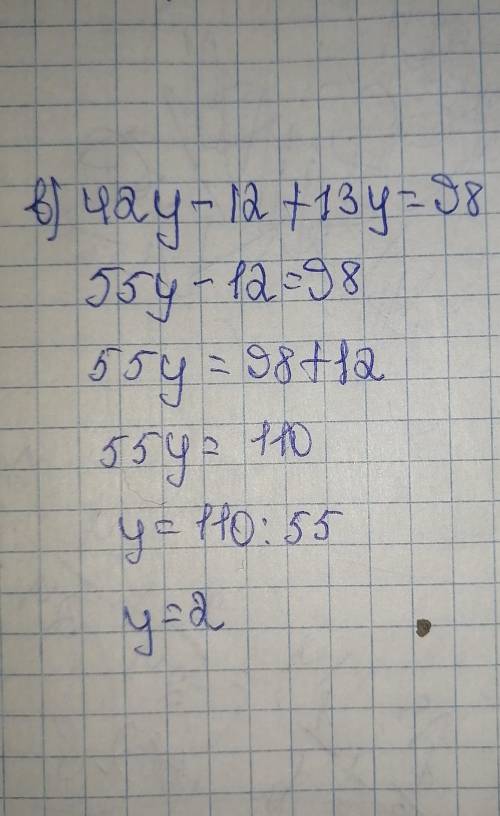 в) 42y - 12 + 13y = 98
55y - 12 = 98
55y = 98 + 12
55y = 110
y = 110 : 55
y = 2